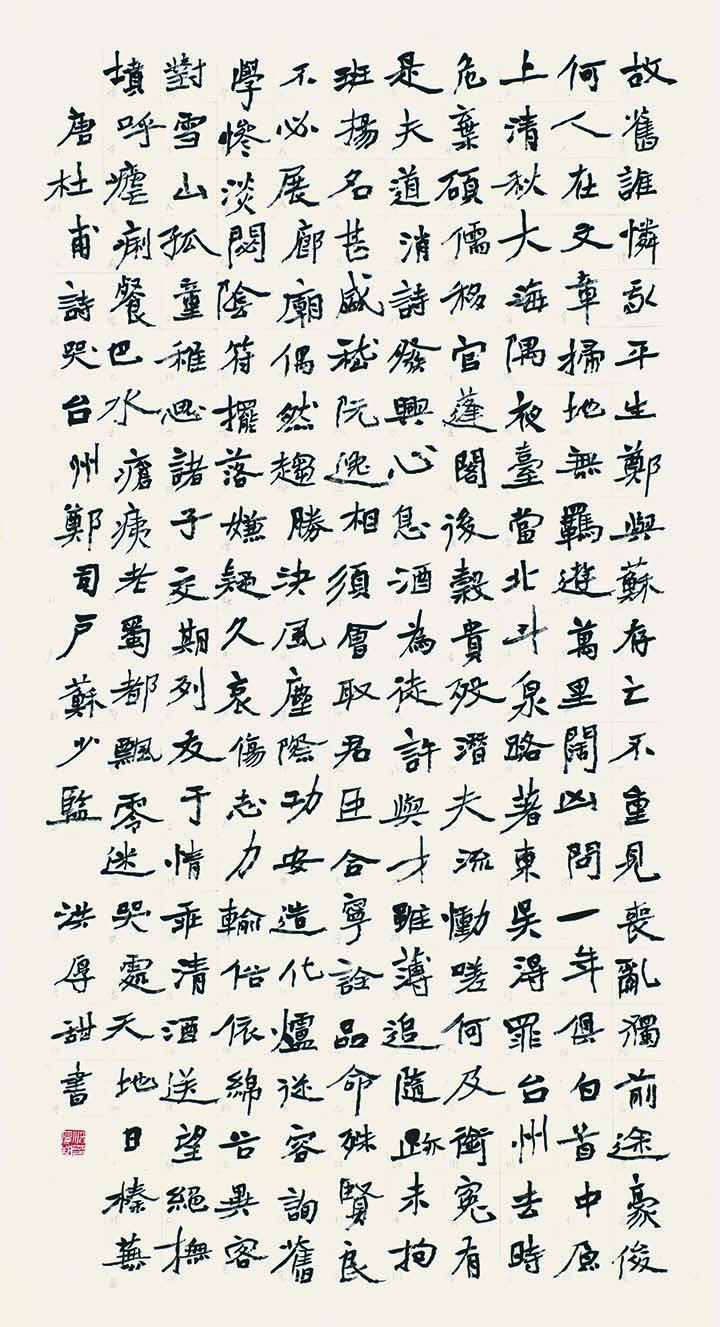 故舊誰憐我平生鄭與蘇存亡不重見喪亂獨前途豪俊
何人在文章掃地無羈遊萬里闊凶問一年俱白首中原
上清秋大海隅夜臺當北斗泉路著東吳得罪台州去時
危棄碩儒移官蓬閣後穀貴歿潛夫流慟嗟何及銜冤有
是夫道消詩發興心息酒為徒許與才雖薄追隨跡未拘
班揚名甚盛嵇阮逸相須會取君臣合寧詮品命殊賢良
不必展廊廟偶然趨勝決風塵際功安造化爐從容詢舊
學慘淡閟陰符擺落嫌疑久哀傷志力輸俗依綿谷異客
對雪山孤童稚思諸子交期列友于情乖清酒送望絕撫
墳呼瘧痢餐巴水瘡痍老蜀都飄零迷哭處天地日榛蕪
唐杜甫詩哭台州鄭司戶蘇少監 洪厚甜書